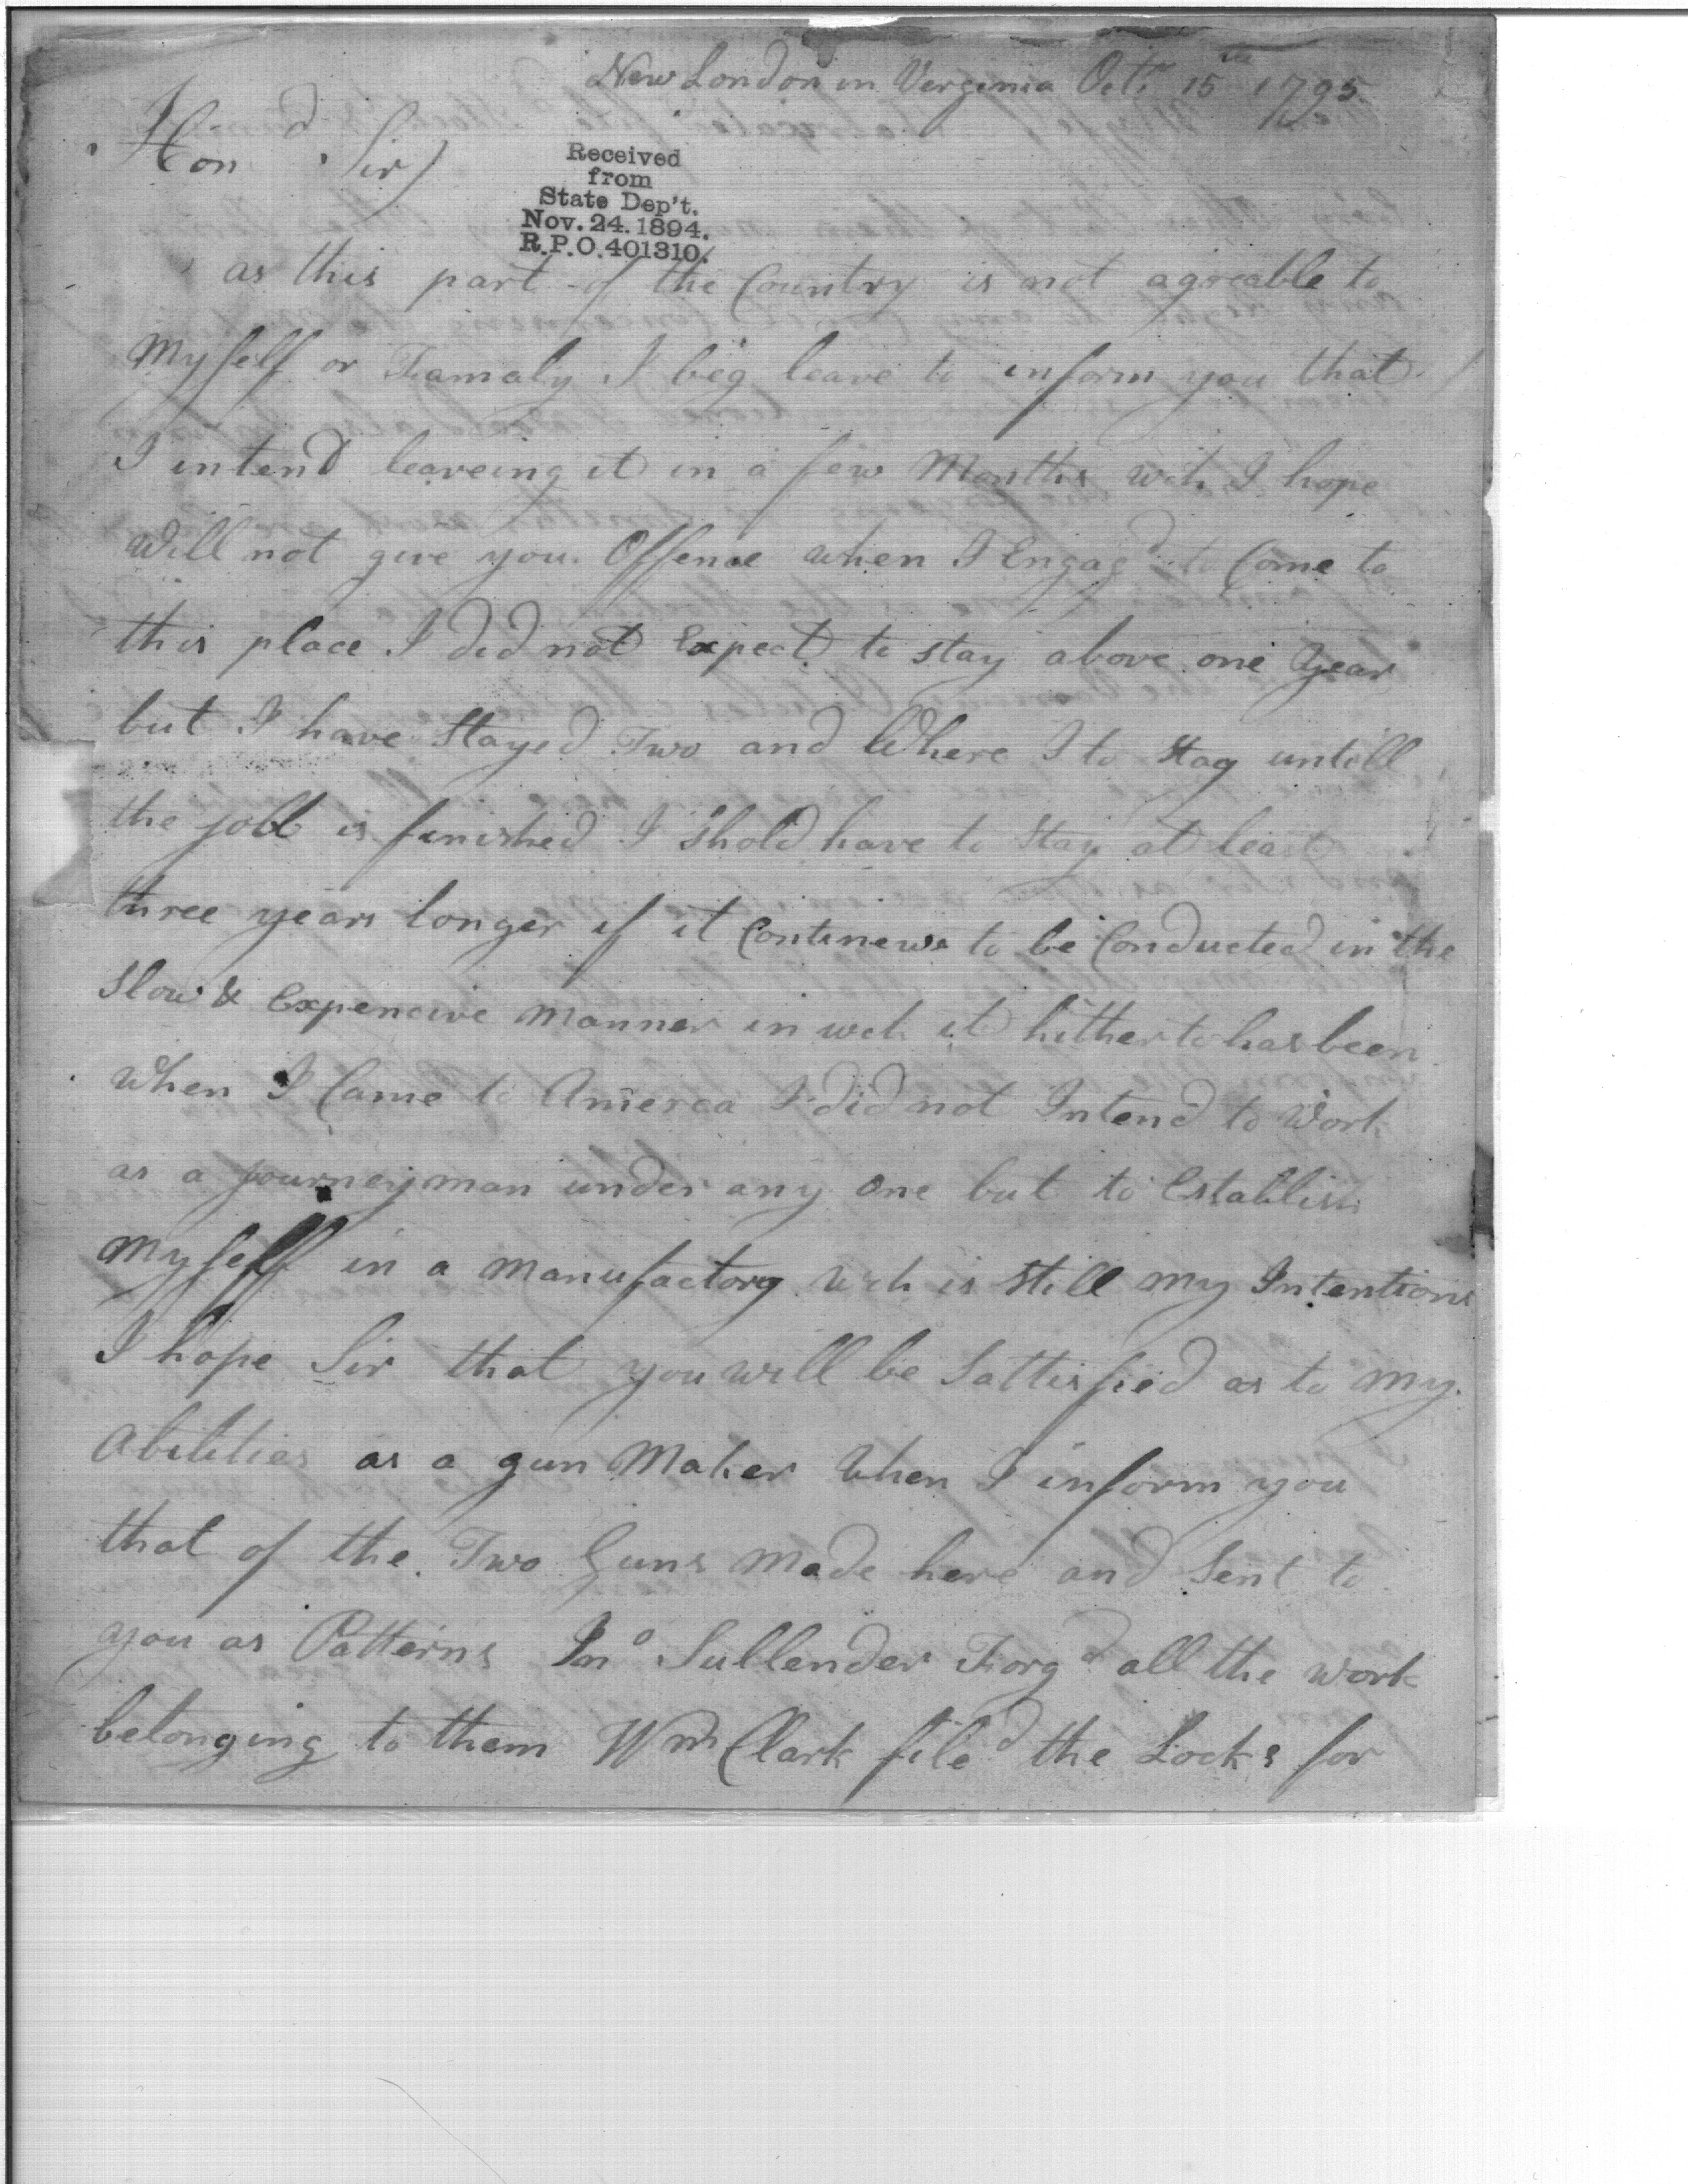 New London in Verginia Octr 15th 1795
Hond Sir/
Received
from
State Dep't.
Nov. 24. 1894.
R.P.O. 401310.
as this part of the Country is not agreable to
Myself or Famaly I beg leave to inform you that
I intend leaveing it in a few Months wch I hope
Will not give you Offence when I Engagd to Come to
this place I did not Expect to stay above one Year
but I have Stayed Two and Where I to Stay untill
the jobb is finished I Shold have to Stay at least
three years longer if it Continews to be Conducted in the
Slow & Expencive Manner in wch it hitherto has been
When I Came to America I did not Intend to Work
as a journeyman under any one but to Establish
Myself in a Manufactory wch is still my Intentions
I hope Sir that you will be Sattisfied as to my
Abilities as a gun Maker When I inform you
that of the Two Guns Made here and Sent to
you as Patterns Jno Sullender Forgd all the work
belonging to them Wm Clark filed the Locks for